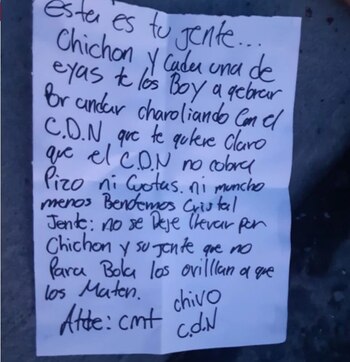 Esta es tu jente...
Chichon y Cada una de
eyas te los Boy a qebrar
Por andar charoliando Con el
C.D.N que te quiere Claro
que el C.D.N no cobra
Pizo ni Cuotas. ni muncho
menos Bendemos Cristal
Jente: no se Deje llevar por
Chichon y su jente que no
Para Bola los orillan a que
los Maten.
Atte: cmt chivo
C.d.N